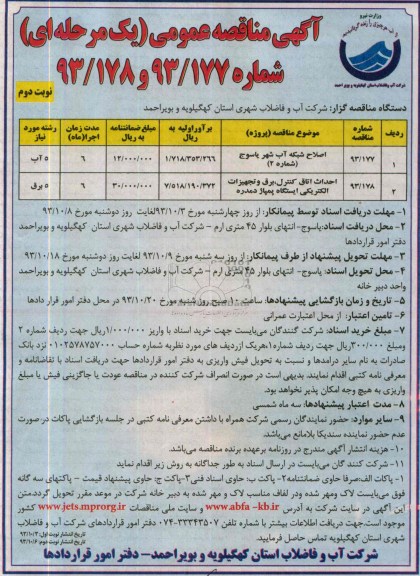 وزارت نیرو
آگهی مناقصه عمومی (یک مرحله ای)
شماره ۹۳/۱۷۷ و ۹۳/۱۷۸
نوبت دوم
دستگاه مناقصه گزار: شرکت آب و فاضلاب شهری استان کهگیلویه و بویراحمد
ردیف شماره مناقصه موضوع مناقصه (پروژه) برآورد اولیه به ریال مبلغ ضمانتنامه به ریال مدت زمان اجرا(ماه) رشته مورد نیاز
۱ ۹۳/۱۷۷ اصلاح شبکه آب شهر یاسوج (شماره ۲) ۱/۷۱۸/۳۵۳/۲۶۶ ۱۲/۰۰۰/۰۰۰ ۶ ۵ آب
۲ ۹۳/۱۷۸ احداث اتاق کنترل،برق و تجهیزات الکتریکی ایستگاه پمپاژ دمدره ۷/۵۱۸/۱۹۰/۳۷۲ ۳۰/۰۰۰/۰۰۰ ۶ ۵ برق
۱- مهلت دریافت اسناد توسط پیمانکار: از روز چهارشنبه مورخ ۹۳/۱۰/۳ لغایت روز دوشنبه مورخ ۹۳/۱۰/۸
۲- محل دریافت اسناد:یاسوج- انتهای بلوار ۴۵ متری ارم - شرکت آب و فاضلاب شهری استان کهگیلویه و بویراحمد
دفتر امور قراردادها
۳- مهلت تحویل پیشنهاد از طرف پیمانکار: از روز سه شنبه مورخ ۹۳/۱۰/۹ لغایت روز دوشنبه مورخ ۹۳/۱۰/۱۸
۴- محل تحویل اسناد: یاسوج- انتهای بلوار ۴۵ متری ارم - شرکت آب و فاضلاب شهری استان کهگیلویه و بویراحمد
واحد دبیر خانه
۵- تاریخ و زمان بازگشایی پیشنهادها: ساعت ۱۰ صبح روز شنبه مورخ ۹۳/۱۰/۲۰ در محل دفتر امور قرار دادها
۶- تامین اعتبار: از محل اعتبارت عمرانی
۷- مبلغ خرید اسناد: شرکت کنندگان می‌بایست جهت خرید اسناد با واریز ۱/۰۰۰/۰۰۰ریال جهت ردیف شماره ۲
ومبلغ ۳۰۰/۰۰۰ریال جهت ردیف شماره ۱هریک ازردیف های مورد نظربه شماره حساب ۰۱۰۲۵۷۸۷۵۷۰۰۰ نزد بانک
صادرات به نام سایر درامدها و نسبت به تحویل فیش واریزی به دفتر امور قراردادها جهت دریافت اسناد با تقاضانامه و
معرفی نامه کتبی اقدام نمایند. بدیهی است در صورت انصراف شرکت کننده در مناقصه عودت یا جاگزینی فیش یا مبلغ
واریزی به هیچ وجه امکان پذیر نخواهد بود.
۸- مدت اعتبار پیشنهادها: سه ماه شمسی
۹- سایر موارد: حضور نمایندگان رسمی شرکت همراه با داشتن معرفی نامه کتبی در جلسه بازگشایی پاکات در صورت
عدم حضور نماینده سندیکا بلامانع می‌باشد.
۱۰- هزینه انتشار آگهی مندرج در روزنامه برعهده برنده مناقصه می‌باشد.
۱۱- شرکت کنند گان می‌بایست در ارسال اسناد به طور جداگانه به روش زیر اقدام نماید
۱- پاکات الف:صرفا حاوی ضمانتنامه۲- پاکت ب: حاوی اسناد فنی۳-پاکت ج: حاوی پیشنهاد قیمت - پاکتهای سه گانه
فوق می‌بایست لاک ومهر شده ودر لفاف مناسب لاک و مهر شده به دبیر خانه شرکت در موعد مقرر تحویل گردد.متن
این آگهی در سایت شرکت به آدرس www.abfa-kb.ir و سایت ملی مناقصات www.jets.mprorg.ir کشور
موجود است.جهت دریافت اطلاعات بیشتر با شماره تلفن ۳۳۳۴۳۵۰۷-۰۷۴ دفتر امور قراردادهای شرکت آب و فاضلاب
شهری استان کهگیلویه تماس حاصل فرمایید.
تاریخ انتشار نوبت اول: ۹۳/۱۰/۳
تاریخ انتشار نوبت دوم: ۹۳/۱۰/۶
شرکت آب و فاضلاب استان کهگیلویه و بویراحمد- دفتر امور قراردادها